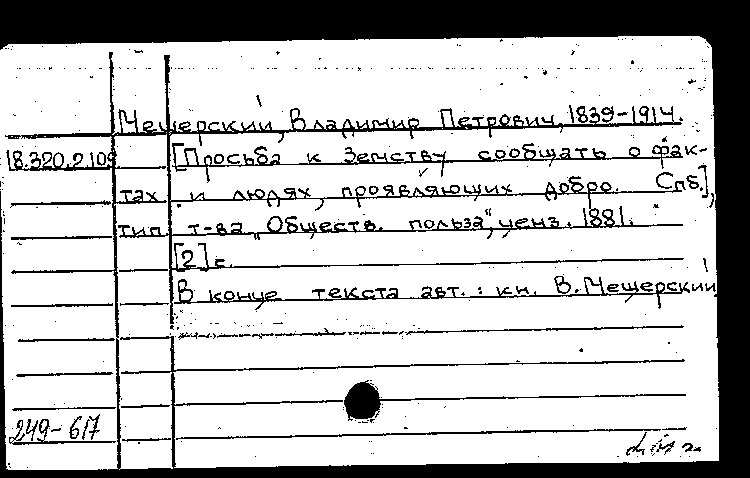 Мещерский, Владимир Петрович, 1839-1914.
18.320.2.109 [Просьба к Земству сообщать о фак-
тах и людях, проявляющих добро. Спб.],
тип. т-ва „Обществ. польза“, ценз. 1881.
[2] с.
В конце текста авт.: кн. В. Мещерский
249-617